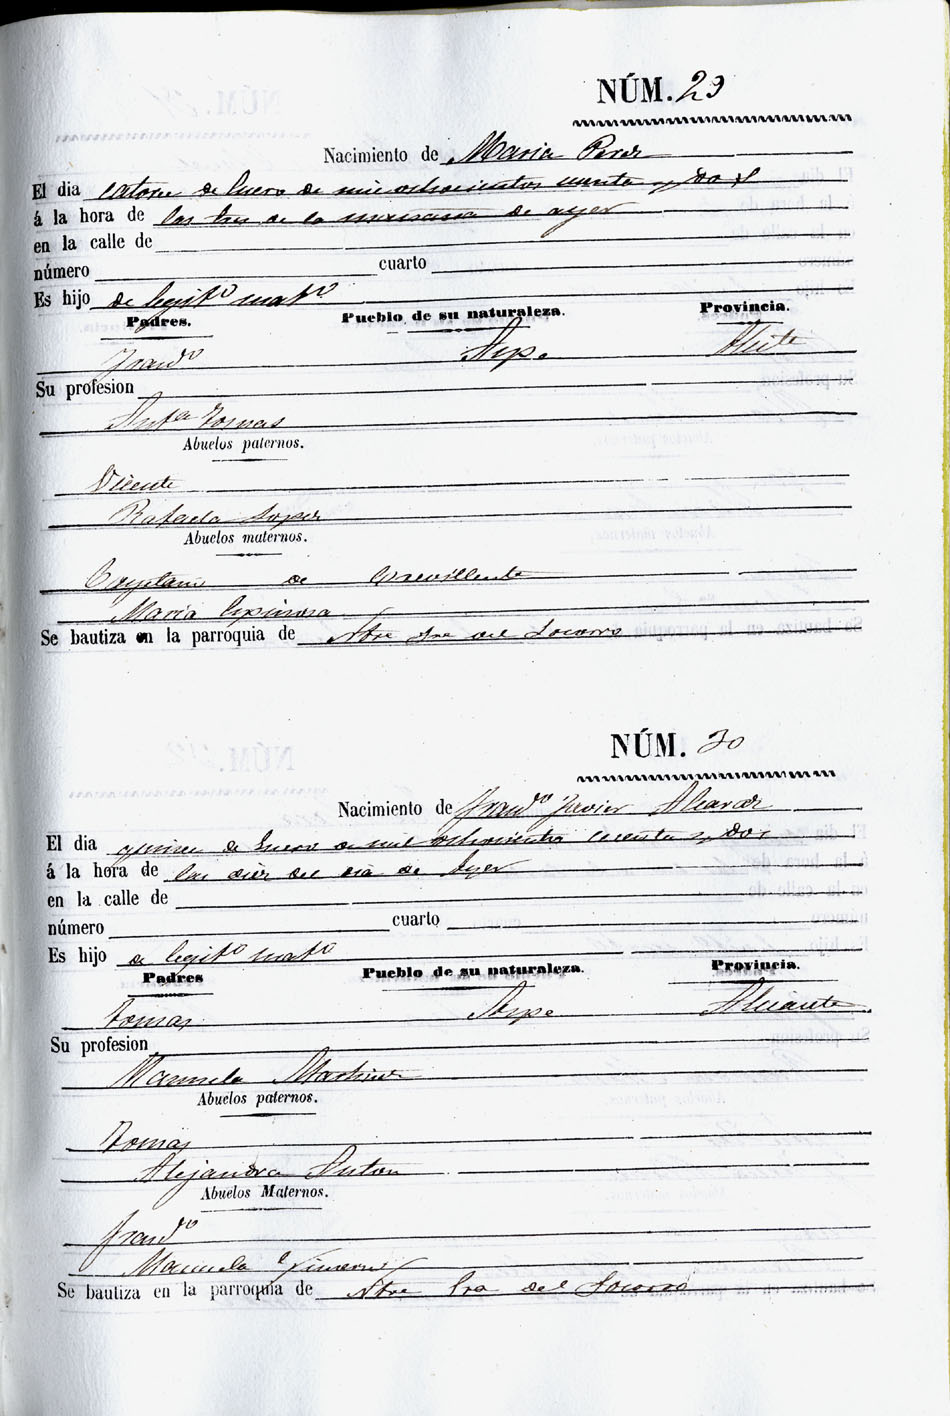 NÚM. 29
Nacimiento de Maria Perez
El dia catorce de Enero de mil ochocientos y dos
á la hora de las tres de la mañana de ayer
en la calle de
número cuarto
Es hijo de legitº matº
Padres. Pueblo de su naturaleza. Provincia.
Francº Aspe Alicte
Su profesion
Antª Tomas
Abuelos paternos.
Vicente
Rafaela Lopez
Abuelos maternos.
Cayetano de Crevillente
Maria Espinosa
Se bautiza en la parroquia de Ntra Sra del Socorro
NÚM. 30
Nacimiento de Francº Javier Alcaraz
El dia quince de Enero de mil ochocientos y dos
á la hora de las diez del dia de Ayer
en la calle de
número cuarto
Es hijo de legitº matº
Padres Pueblo de su naturaleza. Provincia.
Tomas Aspe Alicante
Su profesion
Manuela Martinez
Abuelos paternos.
Tomas
Alejandra Anton
Abuelos Maternos.
Francº
Manuela
Se bautiza en la parroquia de Ntra Sra del Socorro